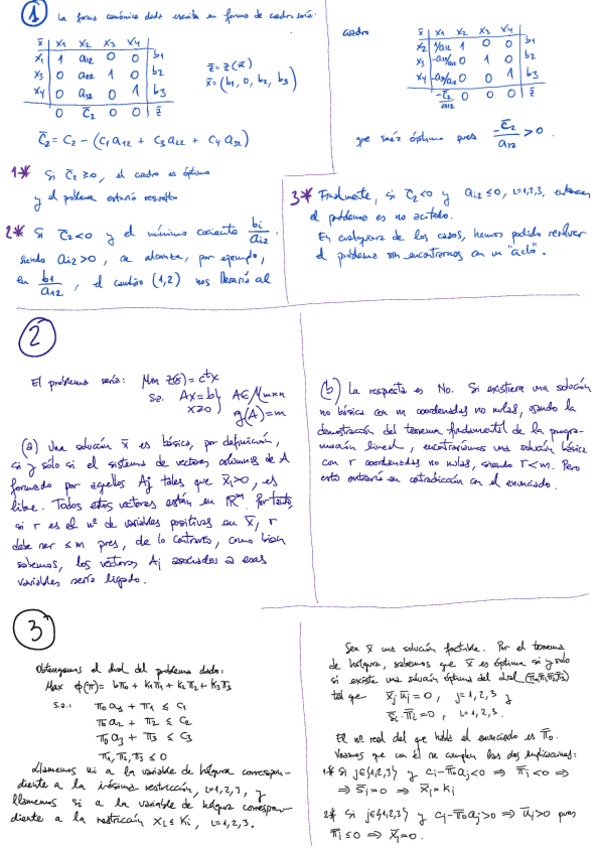 1
La forma canónica dada escrita en forma de cuadro sería:
x̄ x1 x2 x3 x4
x1 1 a12 0 0 b1
x3 0 a22 1 0 b2
x4 0 a32 0 1 b3
0 c̄2 0 0 z̄
z̄ = z(x̄)
x̄ = (b1, 0, b2, b3)
c̄2 = c2 - (c1 a12 + c3 a22 + c4 a32)
1* Si c̄2 ≥ 0, el cuadro es óptimo
y el problema estaría resuelto
2* Si c̄2 < 0 y el mínimo cociente bi/ai2
siendo ai2 > 0, se alcanza, por ejemplo,
en b1/a12, el cambio (1,2) nos llevaría al
cuadro
x̄ x1 x2 x3 x4
x2 1/a12 1 0 0
x3 -a22/a12 0 1 0 b2
x4 -a32/a12 0 0 1 b3
-c̄2/a12 0 0 0 z̄
que será óptimo pues -c̄2/a12 > 0.
3* Finalmente, si c̄2 < 0 y ai2 ≤ 0, i=1,2,3, entonces
el problema es no acotado.
En cualquiera de los casos, hemos podido resolver
el problema sin encontrarnos con un "ciclo".
2
El problema sería: Min z(x) = cᵗx
s.a. Ax = b
x ≥ 0
A ∈ Mmxn
rg(A) = m
(a) Una solución x̄ es básica, por definición,
si y sólo si el sistema de vectores columnas de A
formado por aquellos Aj tales que x̄j > 0, es
libre. Todos estos vectores están en ℝᵐ. Por tanto,
si r es el nº de variables positivas en x̄, r
debe ser ≤ m pues, de lo contrario, como bien
sabemos, los vectores Aj asociados a esas
variables sería ligado.
(b) La respuesta es No. Si existiera una solución
no básica con m coordenadas no nulas, usando la
demostración del teorema fundamental de la progra-
mación lineal, encontraríamos una solución básica
con r coordenadas no nulas, siendo r < m. Pero
esto entraría en contradicción con el enunciado.
3
Obtengamos el dual del problema dado:
Max φ(π) = bπ0 + k1π1 + k2π2 + k3π3
s.a.: π0 a1 + π1 ≤ c1
π0 a2 + π2 ≤ c2
π0 a3 + π3 ≤ c3
π1, π2, π3 ≤ 0
Llamemos ui a la variable de holgura correspon-
diente a la i-ésima restricción, i=1,2,3, y
llamemos si a la variable de holgura correspon-
diente a la restricción xi ≤ ki, i=1,2,3.
Sea x̄ una solución factible. Por el teorema
de holgura, sabemos que x̄ es óptima si y sólo
si existe una solución óptima del dual (π̄0, π̄1, π̄2, π̄3)
tal que x̄j ūj = 0, j=1,2,3 y
s̄i · π̄i = 0, i=1,2,3.
El nº real del que habla el enunciado es π̄0.
Veamos que con él se cumplen las dos implicaciones:
1* Si j∈{1,2,3} y cj - π̄0 aj < 0 ⇒ π̄j < 0 ⇒
⇒ s̄j = 0 ⇒ x̄j = kj
2* Si j∈{1,2,3} y cj - π̄0 aj > 0 ⇒ ūj > 0 pues
π̄j ≤ 0 ⇒ x̄j = 0.